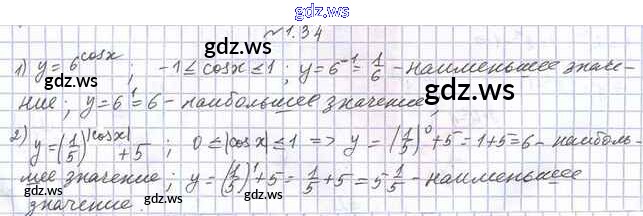 gdz.ws
№ 1.34
gdz.ws gdz.ws
1) y = 6^cosx ; -1 ≤ cosx ≤ 1 ; y = 6^-1 = 1/6 - наименьшее значе-
ние ; y = 6^1 = 6 - наибольшее значение ;
gdz.ws gdz.ws
2) y = (1/5)^|cosx| + 5 ; 0 ≤ |cosx| ≤ 1 => y = (1/5)^0 + 5 = 1 + 5 = 6 - наиболь-
шее значение ; y = (1/5)^1 + 5 = 1/5 + 5 = 5 1/5 - наименьшее
значение.
gdz.ws gdz.ws
gdz.ws